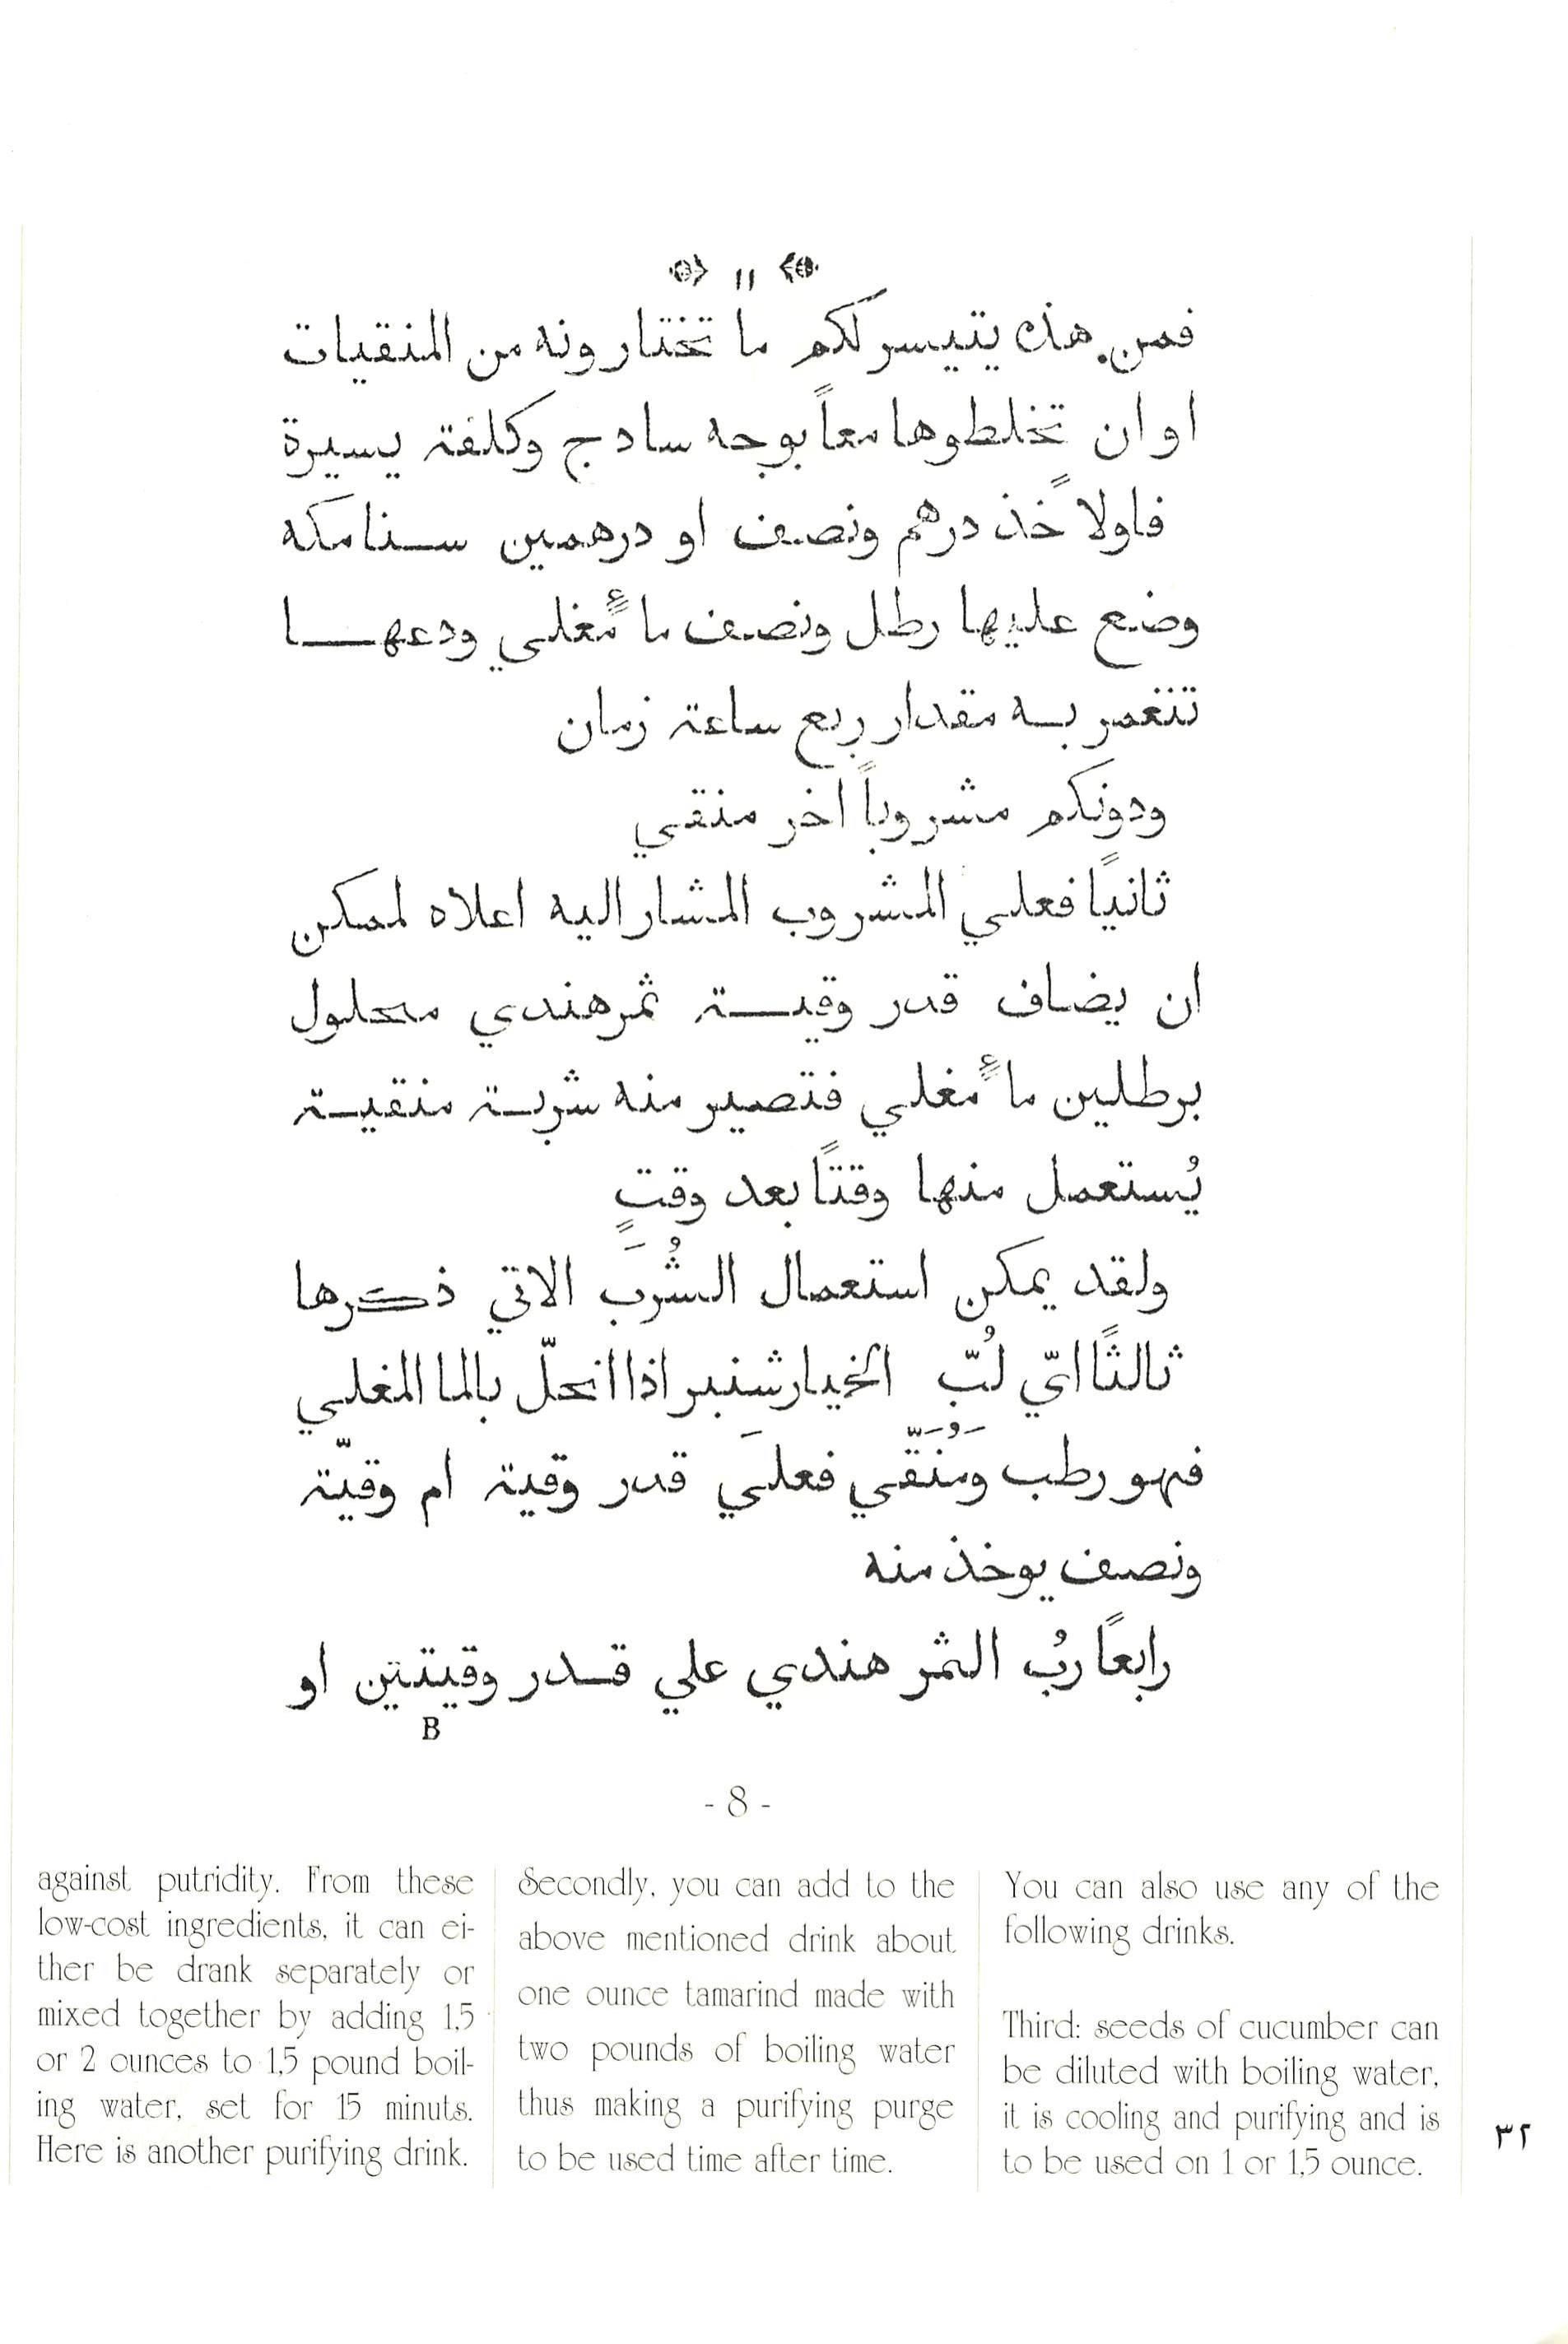 ١١
فمن هذه يتيسر لكم ما تختارونه من المنقيات
او ان تخلطوها معاً بوجه سادج وكلفة يسيرة
فاولاً خذ درهم ونصف او درهمين سنامكه
وضع عليها رطل ونصف ماءً مغلي ودعها
تنغمر به مقدار ربع ساعة زمان
ودونكم مشروباً اخر منقي
ثانيًا فعلي المشروب المشار اليه اعلاه لممكن
ان يضاف قدر وقية ثمرهندي محلول
برطلين ماءً مغلي فتصير منه شربة منقية
يُستعمل منها وقتًا بعد وقتٍ
ولقد يمكن استعمال الشُرَب الاتي ذكرها
ثالثًا اىّ لُبّ الخيارشنبر اذا انحلّ بالما المغلي
فهو رطب ومُنَقّي فعلَي قدر وقية ام وقيّة
ونصف يوخذ منه
رابعًا ربُ الثمر هندي علي قدر وقيتين او
B
- 8 -
against putridity. From these
low-cost ingredients, it can ei-
ther be drank separately or
mixed together by adding 1,5
or 2 ounces to 1,5 pound boil-
ing water, set for 15 minuts.
Here is another purifying drink.
Secondly, you can add to the
above mentioned drink about
one ounce tamarind made with
two pounds of boiling water
thus making a purifying purge
to be used time after time.
You can also use any of the
following drinks.
Third: seeds of cucumber can
be diluted with boiling water,
it is cooling and purifying and is
to be used on 1 or 1,5 ounce.
٣٢